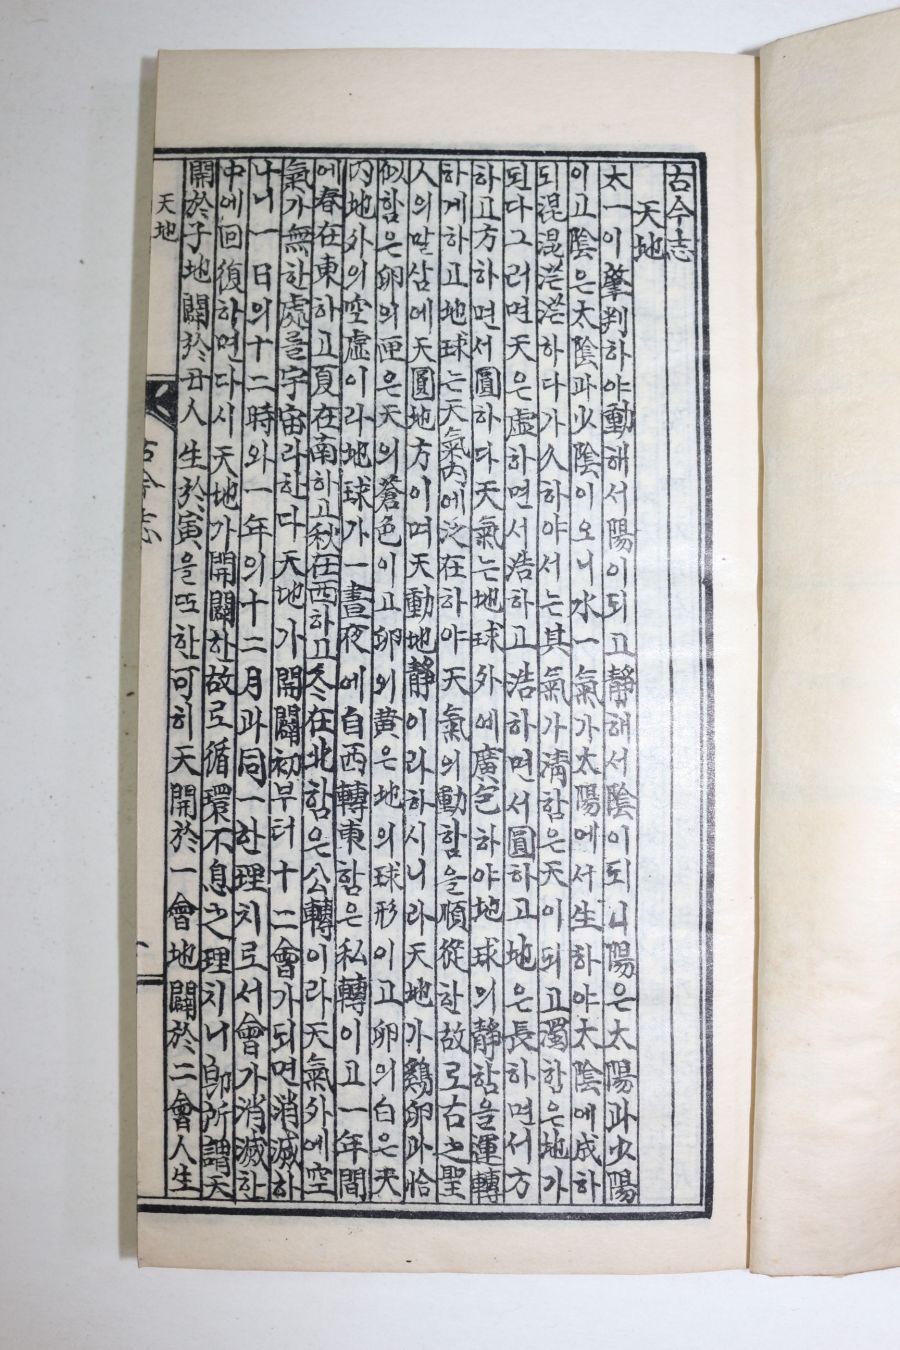 古今志
天地
太一이肇判하야動해서陽이되고靜해서陰이되니陽은太陽과少陽
이고陰은太陰과少陰이오니水一氣가太陽에서生하야太陰에成하
되混混茫茫하다가久하야서는其氣가淸함은天이되고濁함은地가
된다그러면天은虛하면서浩하고浩하면서圓하고地은長하면서方
하고方하면서圓하다天氣는地球外에廣包하야地球의靜함을運轉
하게하고地球는天氣內에泛在하야天氣의動함을順從한故로古之聖
人의말삼에天圓地方이며天動地靜이라하시니라天地가鷄卵과恰
似함은卵의匣은天의蒼色이고卵의黃은地의球形이고卵의白은天
內地外의空虛이라地球가一晝夜에自西轉東함은私轉이고一年間
에春在東하고夏在南하고秋在西하고冬在北함은公轉이라天氣外에空
氣가無한處를宇宙라한다天地가開闢初부터十二會가되면消滅하
나니一日의十二時와一年의十二月과同一한理치로서會가消滅한
中에回復하며다시天地가開闢한故로循環不息之理치니卽所謂天
開於子地闢於丑人生於寅을또한可히天開於一會地闢於二會人生
天地
古今志